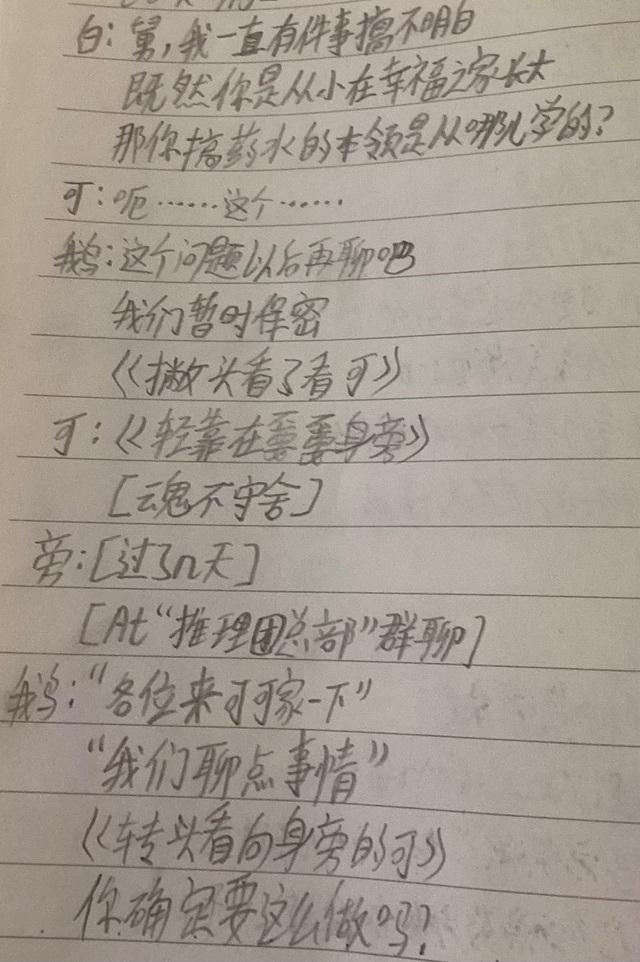 白：舅，我一直有件事搞不明白
既然你是从小在幸福之家长大
那你搞药水的本领是从哪儿学的？
可：呃……这个……
鹅：这个问题以后再聊吧
我们暂时保密
《撇头看了看可》
可：《轻靠在婴婴身旁》
[云魂不守舍]
旁：[过了n天]
[At“推理团总部”群聊]
鹅：“各位来可可家一下”
“我们聊点事情”
《转头看向身旁的可》
你确定要这么做吗？